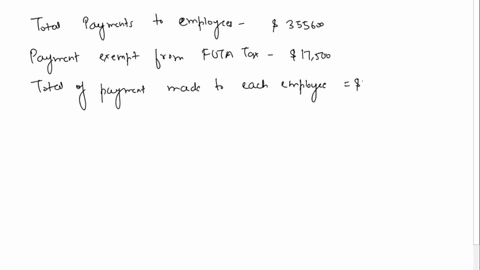 Total Payments to employees - $ 355600
Payment exempt from FUTA Tax - $17,500
Total of payment made to each employee = $